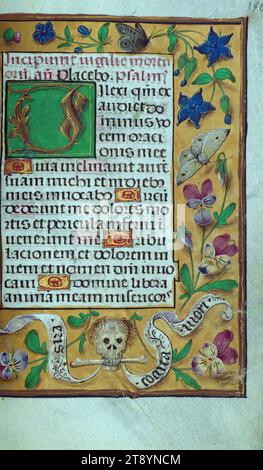 Incipiunt vigilie mortu
orũ. añ Placebo. Psalm⁹
Dilexi qm̃ ex
audiet do
minus vo
cem orati
onis mee
Quia inclinauit aurẽ
suam michi et in dieb⁹
meis inuocabo Circũ
dederunt me dolores mor
tis et pericula inferni in
uenerunt me Tribu
lacionem et dolorem in
ueni et nomen dñi inuo
caui O domine libera
animam meam misericor
eris contra mori
alamy - 2T8YNCM